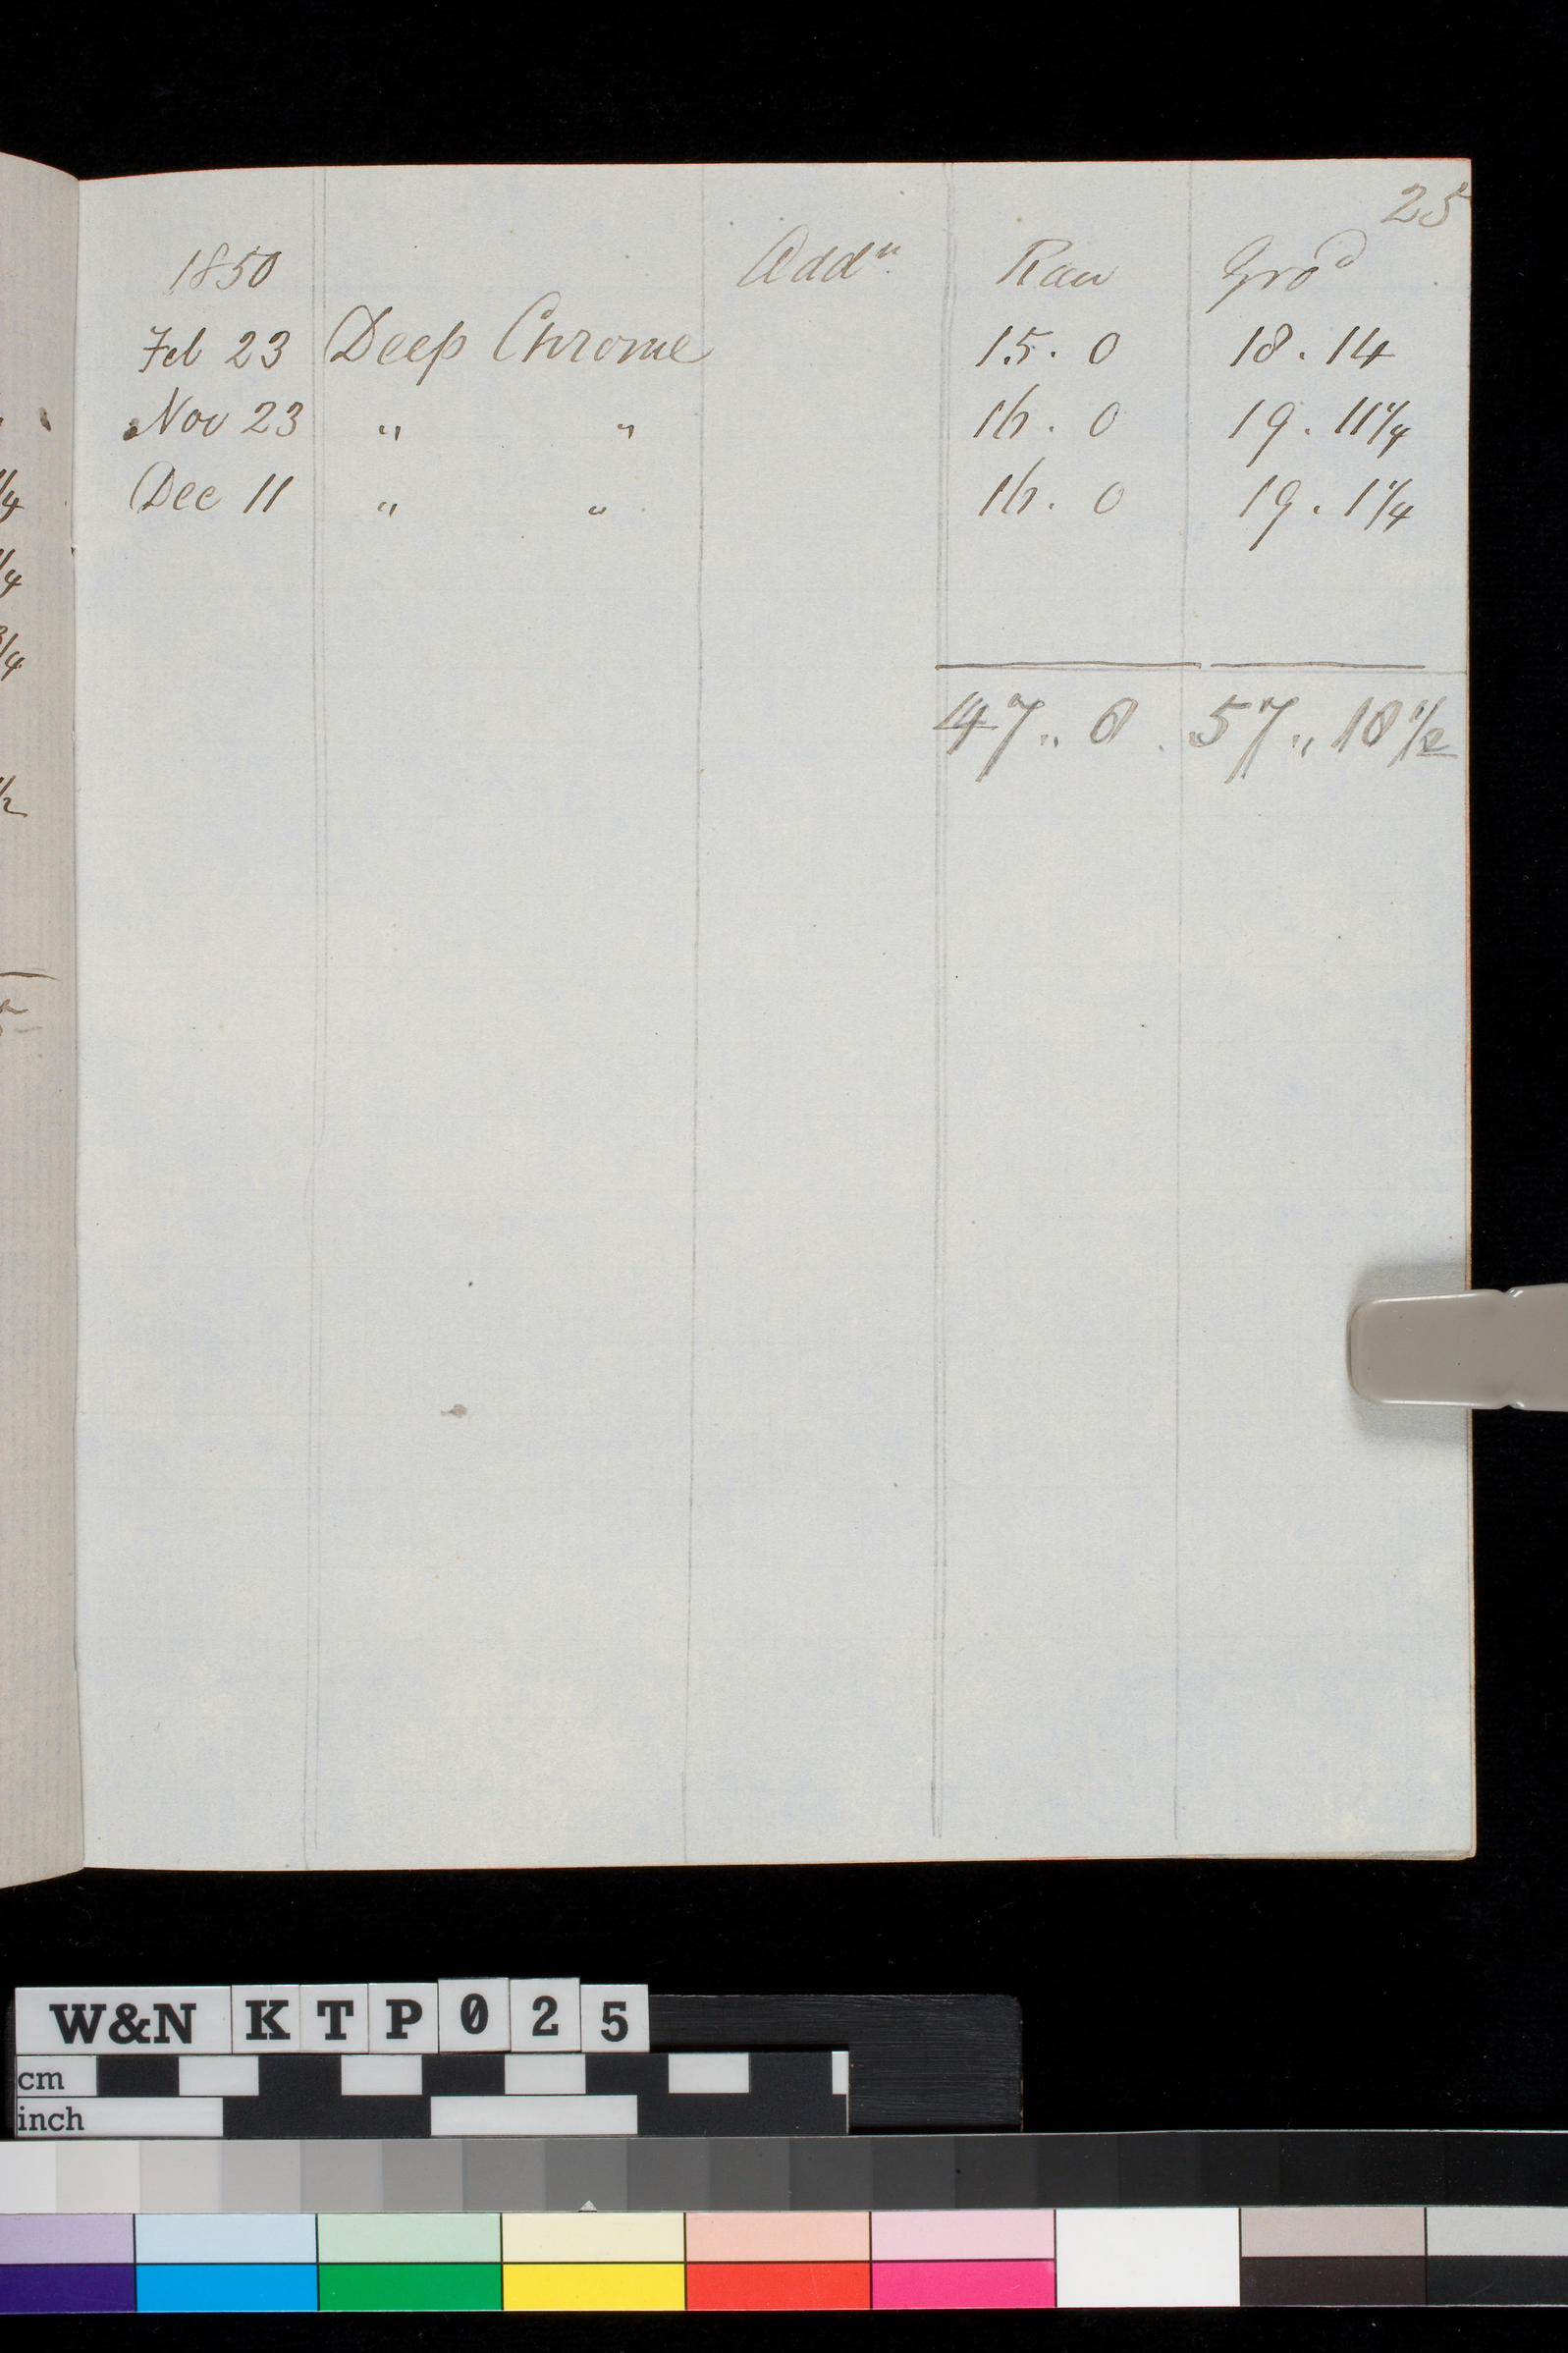 25
1850 Addn. Raw Grod
Feb 23 Deep Chrome 15. 0 18. 14
Nov 23 " " 16. 0 19. 11 1/4
Dec 11 " " 16. 0 19. 1 1/4
47 „ 0 57 „ 10 1/2
1/4
1/4
3/4
1/2
W&N KTP025
cm
inch